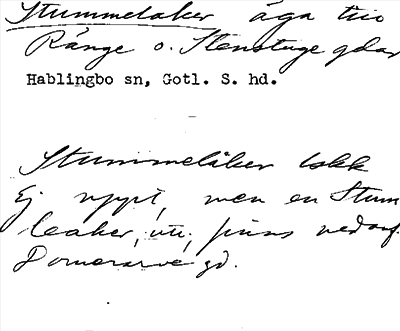 Stummelåker äga tvio
Ränge o. Stenstuge gdar
Hablingbo sn, Gotl. S. hd.
Stummelåker
Ej uppt, men en Stum
leaker, finns nedanf.
Domerarve gd.